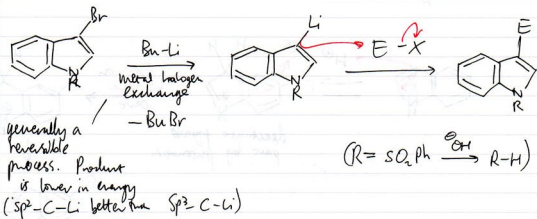 Br
N
R
Bu-Li
metal halogen
exchange
- BuBr
Li
N
R
E - X
E
N
R
generally a
reversible
process. Product
is lower in energy
(sp²-C-Li better than sp³-C-Li)
(R = SO₂Ph ⊖OH → R-H)